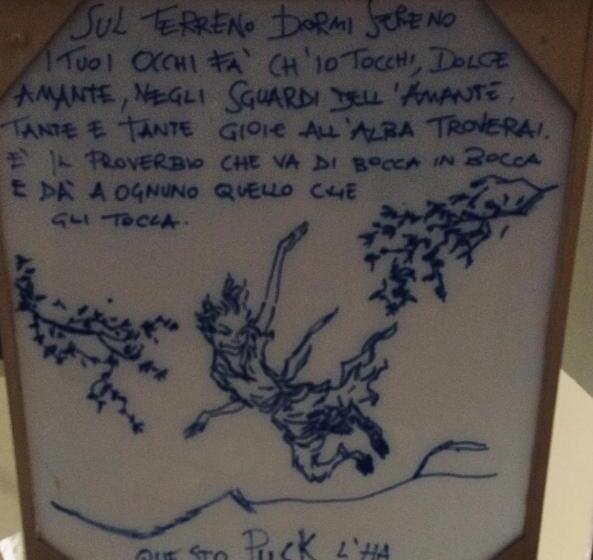 SUL TERRENO DORMI SERENO
I TUOI OCCHI FA' CH'IO TOCCHI, DOLCE
AMANTE, NEGLI SGUARDI DELL'AMANTE,
TANTE E TANTE GIOIE ALL'ALBA TROVERAI.
E' IL PROVERBIO CHE VA DI BOCCA IN BOCCA
E DA' A OGNUNO QUELLO CHE
GLI TOCCA.
QUESTO PUCK L'HA